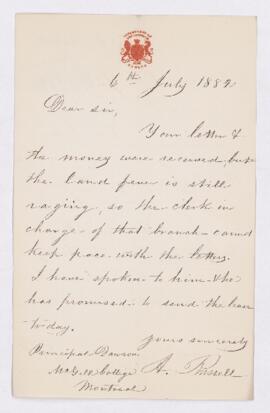 6th July 1882
Dear Sir,
Your letter &
the money were received but
the land fever is still
raging, so the clerk in
charge of that branch cannot
keep pace with the letters.
I have spoken to him & he
has promised to send the
today.
Yours sincerely
Principal Dawson
A. Russell
McGill College
Montreal